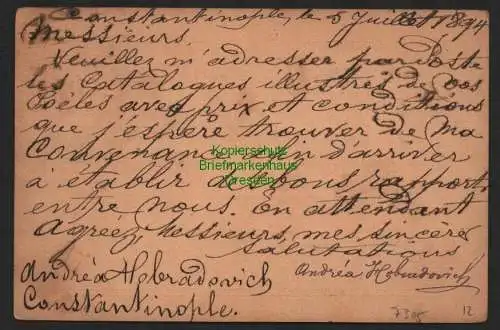 Constantinople, le 5 Juillet 1894
Messieurs,
Veuillez m'adresser par Poste
les Catalogues illustrés de vos
Poêles avec prix et conditions
que j'espère trouver de ma
Convenance afin d'arriver
à établir de bons rapports
entre nous. En attendant
Agréez, Messieurs, mes sincères
salutations
Andréa Hebradovich
Andréa Hebradovich
Constantinople.
Kopierschutz
Briefmarkenhaus
Dresden
12